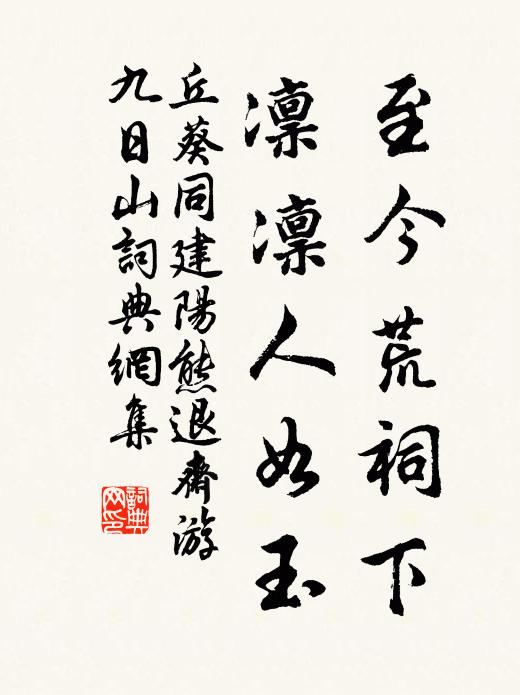 至今荒祠下
凛凛人如玉
丘葵同建陽熊退齋游
九日山詞典網集
詞典
网印